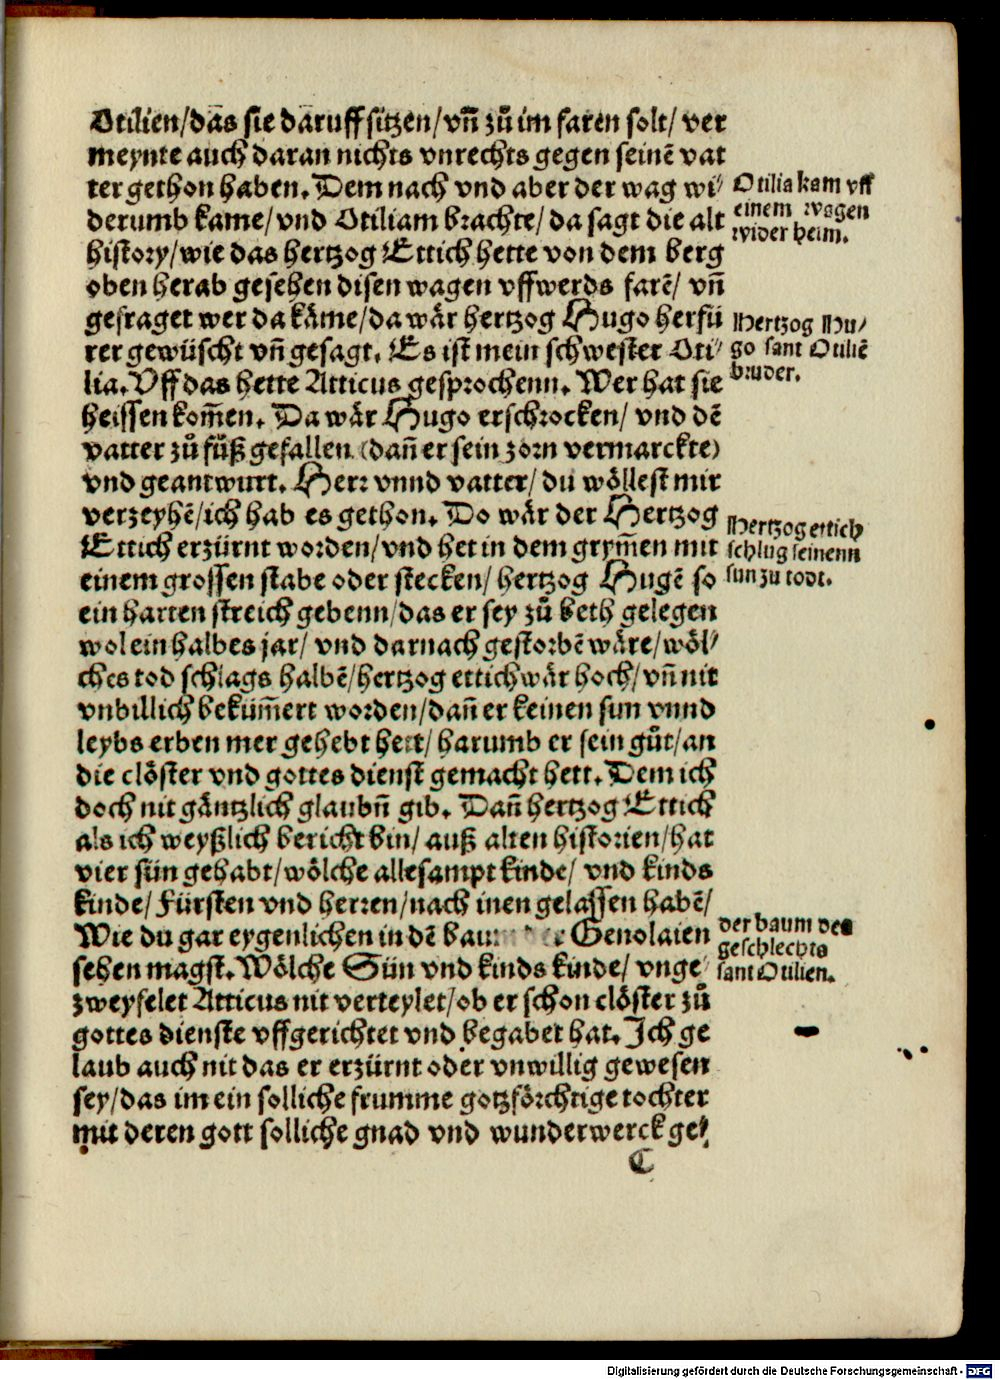 Otilien/das sie daruff sitzen/vñ zů im faren solt/ ver
meynte auch daran nichts vnrechts gegen seinē vat
ter gethon haben. Dem nach vnd aber der wag wi/
derumb kame/vnd Otiliam brachte/da sagt die alt
history/wie das hertzog Ettich hette von dem berg
oben herab gesehen disen wagen vffwerds farē/ vñ
gefraget wer da käme/da wär hertzog Hugo herfü
rer gewüscht vñ gesagt. Es ist mein schwester Oti/
lia. Vff das hette Atticus gesprochenn. Wer hat sie
heissen kom̄en. Da wär Hugo erschrocken/ vnd dē
vatter zů fůß gefallen (dañ er sein zorn vermarckte)
vnd geantwurt. Herr vnnd vatter/ du wöllest mir
verzeyhē/ich hab es gethon. Do wär der Hertzog
Ettich erzürnt worden/vnd het in dem grym̄en mit
einem grossen stabe oder stecken/ hertzog Hugē so
ein harten streich gebenn/das er sey zů beth gelegen
wol ein halbes jar/ vnd darnach gestorbē wäre/wöl/
ches tod schlags halbē/hertzog ettich wär hoch/ vñ nit
vnbillich beküm̄ert worden/dañ er keinen sun vnnd
leybs erben mer gehebt hett/ harumb er sein gůt/an
die clöster vnd gottes dienst gemacht hett. Dem ich
doch nit gäntzlich glaubñ gib. Dañ hertzog Ettich
als ich weyßlich bericht bin/ auß alten historien/hat
vier sün gehabt/wölche allesampt kinde/ vnd kinds
kinde/ Fürsten vnd herren/nach inen gelassen habē/
Wie du gar eygenlichen in dē baum der Genolaien
sehen magst. Wölche Sün vnd kinds kinde/ vnge/
zweyfelet Atticus nit verteylet/ob er schon clöster zů
gottes dienste vffgerichtet vnd begabet hat. Ich ge
laub auch nit das er erzürnt oder vnwillig gewesen
sey/das im ein solliche frumme gotzförchtige tochter
mit deren gott solliche gnad vnd wunderwerck ge/
C
Otilia kam vff
einem wagen
wider heim.
Hertzog Hu/
go sant Otiliē
bruder.
Hertzog ettich
schlug seinenn
sun zu todt.
der baum des
geschlechts
sant Otilien.
Digitalisierung gefördert durch die Deutsche Forschungsgemeinschaft - DFG